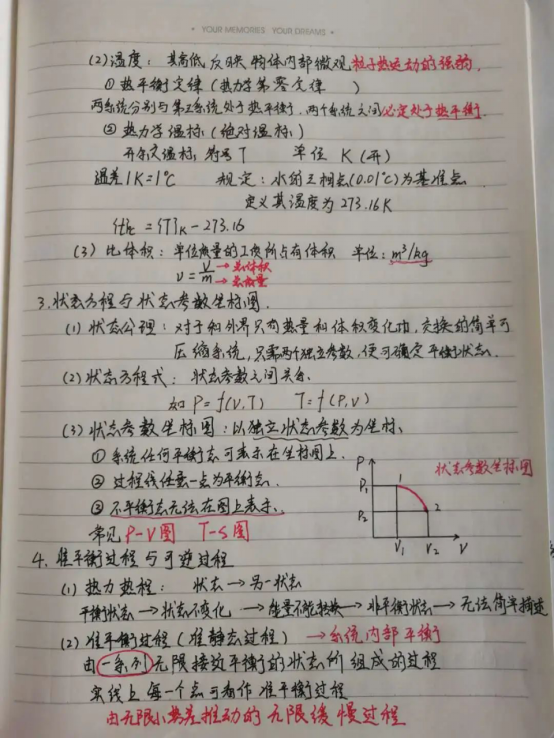 YOUR MEMORIES YOUR DREAMS
(2)温度：其高低反映物体内部微观粒子热运动的强弱.
①热平衡定律(热力学第零定律 )
两系统分别与第三系统处于热平衡,两个系统之间必定处于热平衡.
②热力学温标(绝对温标)
开尔文温标,符号T 单位 K(开)
温差1K=1℃ 规定：水的三相点(0.01℃)为基准点.
定义其温度为273.16K
{t}℃ = {T}K - 273.16
(3)比体积：单位质量的工质所占有体积 单位：m³/kg
v = V/m →总体积
→总质量
3.状态方程与状态参数坐标图.
(1)状态公理：对于和外界只有热量和体积变化功,交换的简单可
压缩系统,只需两个独立参数,便可确定平衡状态.
(2)状态方程式：状态参数之间关系.
如 P=f(V,T) T=f(P,V)
(3)状态参数坐标图：以独立状态参数为坐标.
①系统任何平衡态可表示在坐标图上.
②过程线任意一点为平衡态.
③不平衡态无法在图上表示.
常见P-V图 T-S图
状态参数坐标图
P
P₁
P₂
1
2
V₁ V₂ V
4.准平衡过程与可逆过程
(1)热力过程： 状态→另一状态
平衡状态→状态不变化→能量不能转换→非平衡状态→无法简单描述
(2)准平衡过程(准静态过程)→系统内部平衡
由一系列无限接近平衡的状态所组成的过程
实线上每一个点可看作准平衡过程
由无限小势差推动的无限缓慢过程